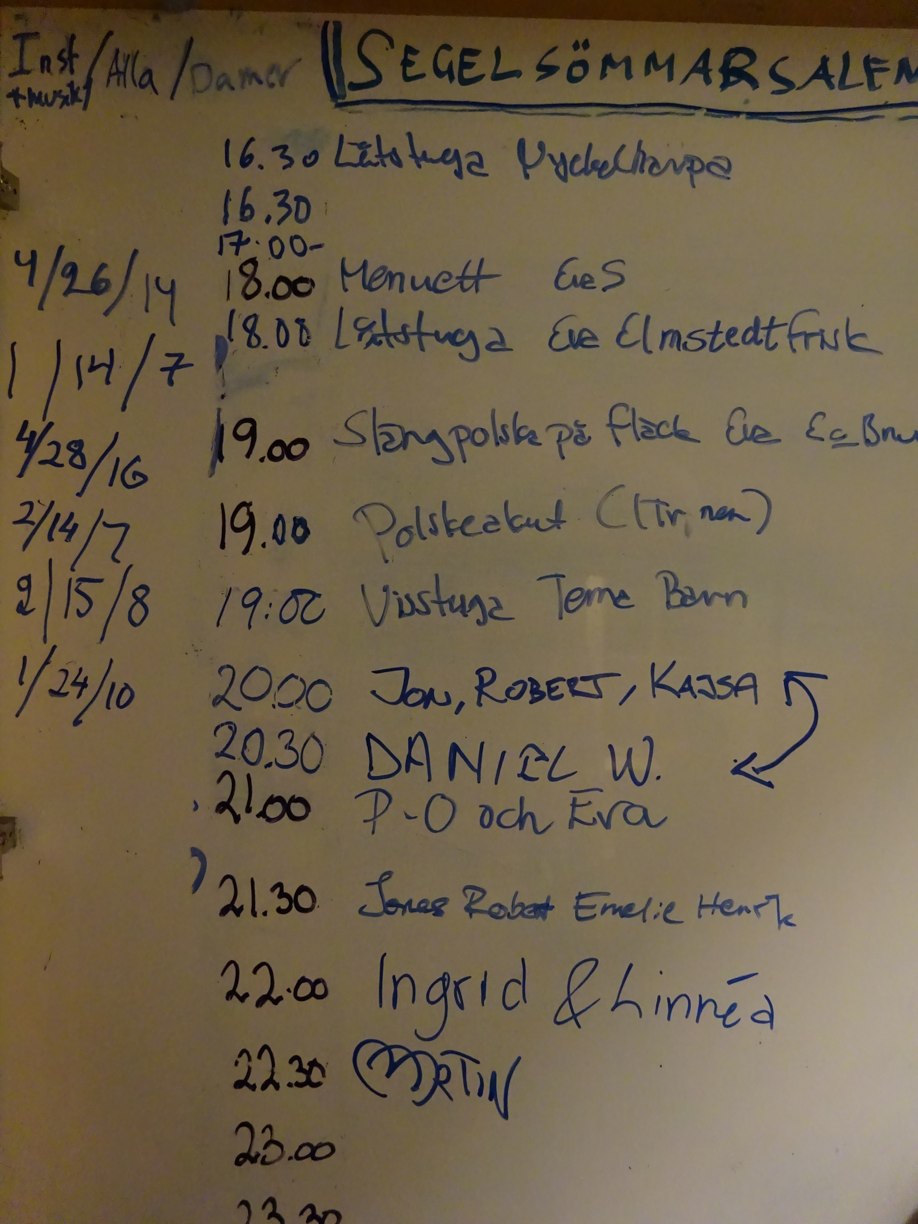 Inst / Alla / Damer SEGELSÖMMARSALEN
+musik
16.30 Låtstuga Nyckelharpa
16.30
17.00-
4/26/14 18.00 Menuett Eva S
1/14/7 18.00 Låtstuga Eva Elmstedt Frisk
4/28/16 19.00 Slängpolska på fläck Eva &
2/14/7 19.00 Polskeakut
2/15/8 19:00 Visstuga Tema Barn
1/24/10 20.00 JON, ROBERT, KAJSA
20.30 DANIEL W.
21.00 P-O och Eva
21.30 Jonas Robert Emelie Henrik
22.00 Ingrid & Linnéa
22.30 MARTIN
23.00
23.30